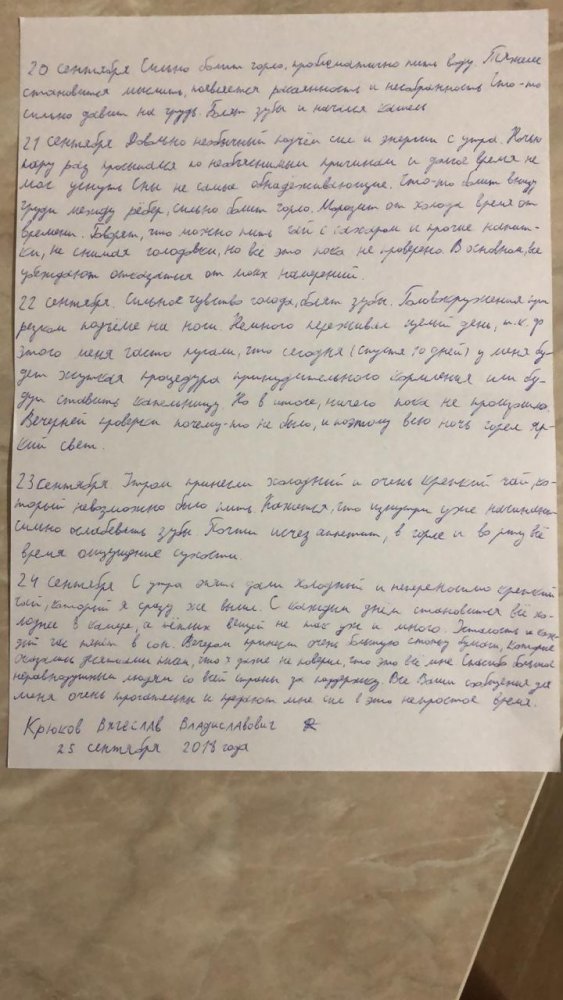 20 сентября Сильно болит горло, проблематично пить воду. Тяжелее
становится мыслить, появляется рассеянность и несобранность Что-то
сильно давит на грудь Болят зубы и начался кашель
21 сентября Довольно необычный подъём сил и энергии с утра. Ночью
пару раз просыпался по необъяснимым причинам и долгое время не
мог уснуть Сны не самые обнадёживающие. Что-то болит внизу
груди между рёбер, сильно болит горло. Морозит от холода время от
времени. Говорят, что можно пить чай с сахаром и прочие напит-
ки, не снимая голодовки, но всё это пока не проверено. В основном, все
убеждают отказаться от моих намерений.
22 сентября. Сильное чувство голода, болят зубы. Головокружения при
резком подъёме на ноги. Немного переживал целый день, т.к. до
этого меня часто пугали, что сегодня (спустя 10 дней) у меня бу-
дет жуткая процедура принудительного кормления или бу-
дут ставить капельницу Но в итоге, ничего пока не произошло.
Вечерней проверки почему-то не было, и поэтому всю ночь горел яр-
кий свет.
23 сентября Утром принесли холодный и очень крепкий чай, ко-
торый невозможно было пить Кажется, что изнутри уже начинают
сильно ослабевать зубы. Почти исчез аппетит, в горле и во рту всё
время ощущение сухости.
24 сентября С утра опять дали холодный и непереносимо крепкий
чай, который я сразу же вылил. С каждым днём становится всё хо-
лоднее в камере, а тёплых вещей не так уж и много. Усталость и каж-
дый час тянет в сон. Вечером принесли очень большую стопку бумаг, которые
оказались десятками писем, что я даже не поверил, что это всё мне Спасибо большое
неравнодушным людям со всей страны за поддержку Все Ваши сообщения для
меня очень трогательны и придают мне сил в это непростое время.
Крюков Вячеслав Владиславович
25 сентября 2018 года